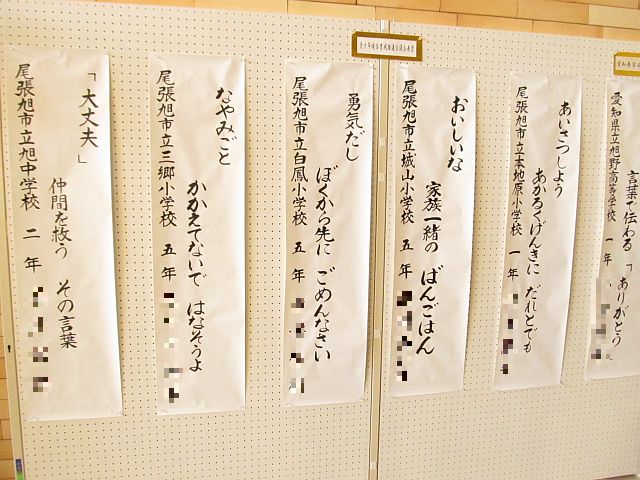 言葉で伝わる 「ありがとう
愛知県立旭野高等学校 一年
あいさつしよう
あかるくげんきに だれとでも
尾張旭市立本地原小学校 一年
おいしいな
家族一緒の ばんごはん
尾張旭市立城山小学校 五年
勇気だし
ぼくから先に ごめんなさい
尾張旭市立白鳳小学校 五年
なやみごと
かかえてないで はなそうよ
尾張旭市立三郷小学校 五年
「大丈夫」
仲間を救う その言葉
尾張旭市立旭中学校 二年